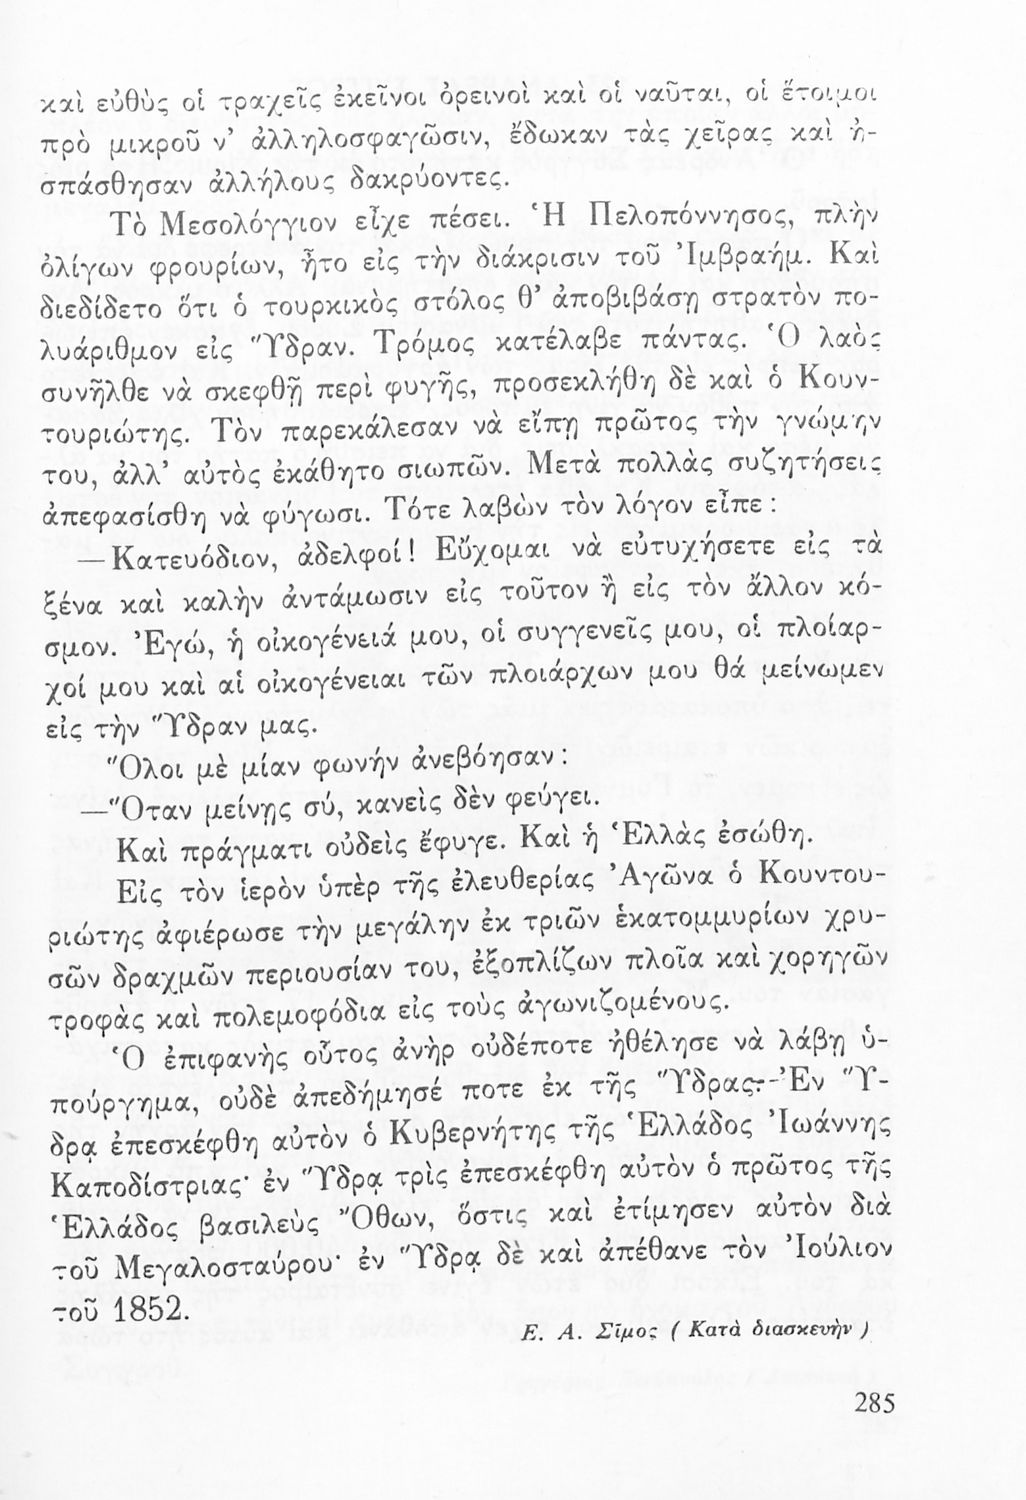 καὶ εὐθὺς οἱ τραχεῖς ἐκεῖνοι ὀρεινοὶ καὶ οἱ ναῦται, οἱ ἕτοιμοι
πρὸ μικροῦ ν’ ἀλληλοσφαγῶσιν, ἔδωκαν τὰς χεῖρας καὶ ἠ-
σπάσθησαν ἀλλήλους δακρύοντες.
Τὸ Μεσολόγγιον εἶχε πέσει. Ἡ Πελοπόννησος, πλὴν
ὀλίγων φρουρίων, ἦτο εἰς τὴν διάκρισιν τοῦ Ἰμβραήμ. Καὶ
διεδίδετο ὅτι ὁ τουρκικὸς στόλος θ’ ἀποβιβάσῃ στρατὸν πο-
λυάριθμον εἰς Ὕδραν. Τρόμος κατέλαβε πάντας. Ὁ λαὸς
συνῆλθε νὰ σκεφθῇ περὶ φυγῆς, προσεκλήθη δὲ καὶ ὁ Κουν-
τουριώτης. Τὸν παρεκάλεσαν νὰ εἴπῃ πρῶτος τὴν γνώμην
του, ἀλλ’ αὐτὸς ἐκάθητο σιωπῶν. Μετὰ πολλὰς συζητήσεις
ἀπεφασίσθη νὰ φύγωσι. Τότε λαβὼν τὸν λόγον εἶπε :
— Κατευόδιον, ἀδελφοί! Εὔχομαι νὰ εὐτυχήσετε εἰς τὰ
ξένα καὶ καλὴν ἀντάμωσιν εἰς τοῦτον ἢ εἰς τὸν ἄλλον κό-
σμον. Ἐγώ, ἡ οἰκογένειά μου, οἱ συγγενεῖς μου, οἱ πλοίαρ-
χοί μου καὶ αἱ οἰκογένειαι τῶν πλοιάρχων μου θά μείνωμεν
εἰς τὴν Ὕδραν μας.
Ὅλοι μὲ μίαν φωνήν ἀνεβόησαν :
—Ὅταν μείνῃς σύ, κανεὶς δὲν φεύγει.
Καὶ πράγματι οὐδεὶς ἔφυγε. Καὶ ἡ Ἑλλὰς ἐσώθη.
Εἰς τὸν ἱερὸν ὑπὲρ τῆς ἐλευθερίας Ἀγῶνα ὁ Κουντου-
ριώτης ἀφιέρωσε τὴν μεγάλην ἐκ τριῶν ἑκατομμυρίων χρυ-
σῶν δραχμῶν περιουσίαν του, ἐξοπλίζων πλοῖα καὶ χορηγῶν
τροφὰς καὶ πολεμοφόδια εἰς τοὺς ἀγωνιζομένους.
Ὁ ἐπιφανὴς οὗτος ἀνὴρ οὐδέποτε ἠθέλησε νὰ λάβῃ ὑ-
πούργημα, οὐδὲ ἀπεδήμησέ ποτε ἐκ τῆς Ὕδρας.--Ἐν Ὕ-
δρᾳ ἐπεσκέφθη αὐτὸν ὁ Κυβερνήτης τῆς Ἑλλάδος Ἰωάννης
Καποδίστριας· ἐν Ὕδρᾳ τρὶς ἐπεσκέφθη αὐτὸν ὁ πρῶτος τῆς
Ἑλλάδος βασιλεὺς Ὄθων, ὅστις καὶ ἐτίμησεν αὐτὸν διὰ
τοῦ Μεγαλοσταύρου· ἐν Ὕδρᾳ δὲ καὶ ἀπέθανε τὸν Ἰούλιον
τοῦ 1852.
Ε. Α. Σῖμος ( Κατὰ διασκευὴν )
285